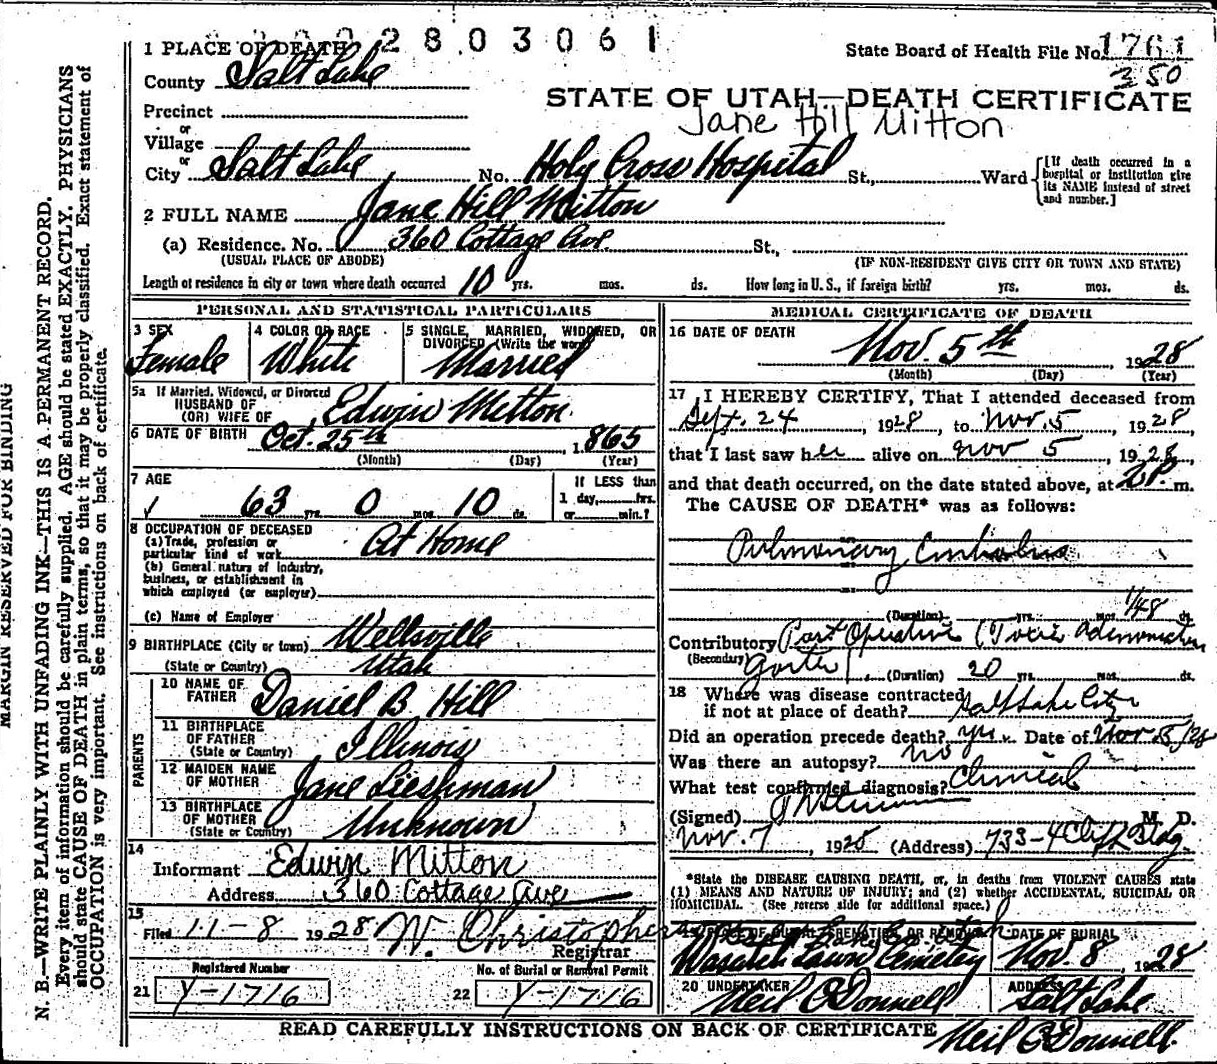 2803061
State Board of Health File No. 1761
350
STATE OF UTAH—DEATH CERTIFICATE
Jane Hill Mitton
1 PLACE OF DEATH
County Salt Lake
Precinct
or
Village
or
City Salt Lake No. Holy Cross Hospital St., Ward
[If death occurred in a hospital or institution give its NAME instead of street and number.]
2 FULL NAME Jane Hill Mitton
(a) Residence. No. 360 Cottage Ave. St.,
(USUAL PLACE OF ABODE) (IF NON-RESIDENT GIVE CITY OR TOWN AND STATE)
Length of residence in city or town where death occurred 10 yrs. mos. ds. How long in U. S., if foreign birth? yrs. mos. ds.
PERSONAL AND STATISTICAL PARTICULARS
3 SEX Female
4 COLOR OR RACE White
5 SINGLE, MARRIED, WIDOWED, OR DIVORCED (Write the word) Married
5a If Married, Widowed, or Divorced
HUSBAND OF
(OR) WIFE OF Edwin Mitton
6 DATE OF BIRTH Oct. 25th, 1865
(Month) (Day) (Year)
7 AGE 63 yrs. 0 mos. 10 ds.
If LESS than
1 day, hrs.
or min.?
8 OCCUPATION OF DECEASED
(a) Trade, profession or
particular kind of work At Home
(b) General nature of industry,
business, or establishment in
which employed (or employer)
(c) Name of Employer
9 BIRTHPLACE (City or town) Wellsville
(State or Country) Utah
PARENTS
10 NAME OF FATHER Daniel B. Hill
11 BIRTHPLACE OF FATHER (State or Country) Illinois
12 MAIDEN NAME OF MOTHER Jane Lieshman
13 BIRTHPLACE OF MOTHER (State or Country) Unknown
14
Informant Edwin Mitton
Address 360 Cottage Ave
15
Filed 11-8 1928 W. Christopherson
Registrar
Registered Number
21 Y-1716
No. of Burial or Removal Permit
22 Y-1716
MEDICAL CERTIFICATE OF DEATH
16 DATE OF DEATH
Nov. 5th 1928
(Month) (Day) (Year)
17 I HEREBY CERTIFY, That I attended deceased from
Sept. 24, 1928, to Nov. 5, 1928,
that I last saw her alive on Nov 5, 1928,
and that death occurred, on the date stated above, at 2 P. m.
The CAUSE OF DEATH* was as follows:
Pulmonary Embolus
(Duration) yrs. mos. 1/48 ds.
Contributory Post Operative (Toxic Adenomatous
(Secondary) Goiter) (Duration) 20 yrs. mos. ds.
18 Where was disease contracted
if not at place of death? Salt Lake City
Did an operation precede death? yes Date of Nov 5/28
Was there an autopsy? no
What test confirmed diagnosis? Clinical
(Signed) M. D.
Nov. 7, 1928 (Address) 733-4 Clift Bldg.
*State the DISEASE CAUSING DEATH, or, in deaths from VIOLENT CAUSES state
(1) MEANS AND NATURE OF INJURY; and (2) whether ACCIDENTAL, SUICIDAL OR
HOMICIDAL. (See reverse side for additional space.)
19 PLACE OF BURIAL, CREMATION, OR REMOVAL
Wasatch Lawn Cemetery
DATE OF BURIAL
Nov. 8, 1928
20 UNDERTAKER
Neil O'Donnell
ADDRESS
Salt Lake
READ CAREFULLY INSTRUCTIONS ON BACK OF CERTIFICATE
Neil O'Donnell
MARGIN RESERVED FOR BINDING
N. B.—WRITE PLAINLY WITH UNFADING INK—THIS IS A PERMANENT RECORD.
Every item of information should be carefully supplied. AGE should be stated EXACTLY. PHYSICIANS
should state CAUSE OF DEATH in plain terms, so that it may be properly classified. Exact statement of
OCCUPATION is very important. See instructions on back of certificate.